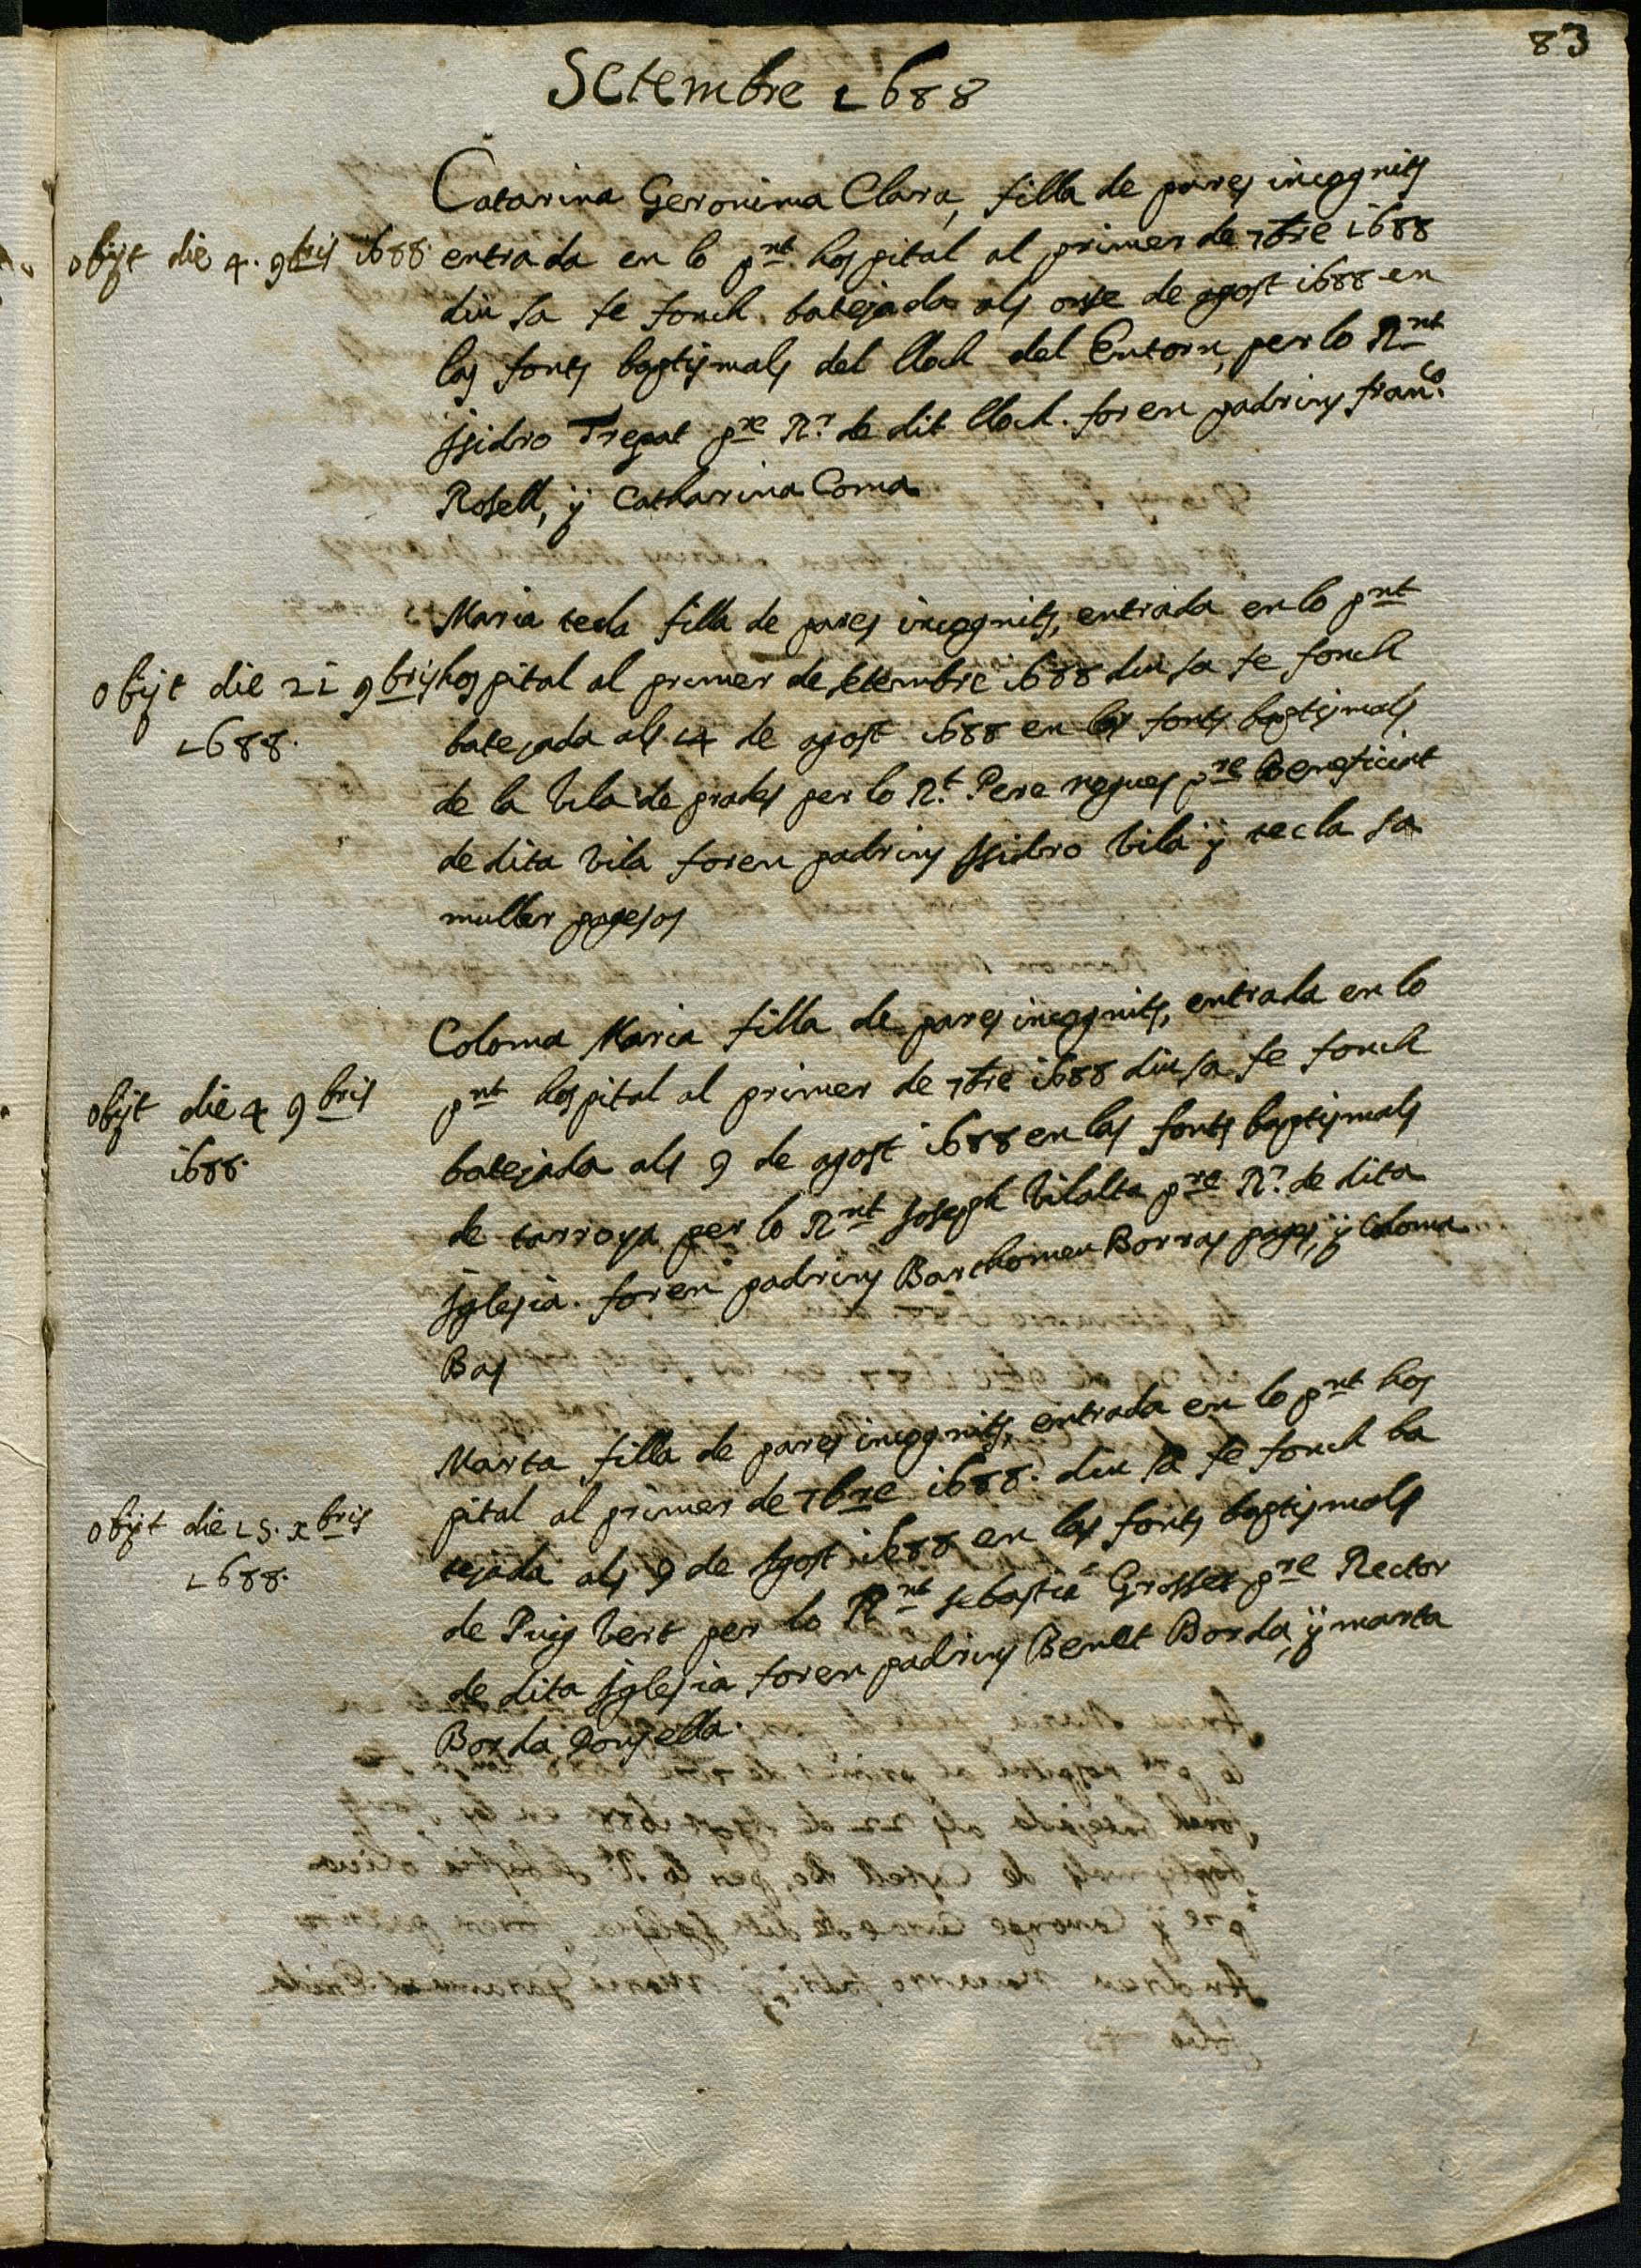 83
Setembre 1688
Catarina Geronima Clara, filla de pares incognits
obijt die 4. 9bris 1688. entrada en lo pnt. hospital al primer de 7bre 1688
diu sa fe fonch batejada als onse de agost 1688 en
las fonts baptismals del lloch del Entorn, per lo Rnt
Jsidro Trepat pre Rr. de dit lloch. foren padrins franco.
Rosell, ÿ Catharina Coma
Maria tecla filla de pares incognits, entrada en lo pnt
obijt die 21 9bris hospital al primer de setembre 1688 diu sa fe fonch
1688. batejada als 14 de agost 1688 en las fonts baptismals
de la vila de prades per lo Rt. Pere pre Beneficiat
de dita vila foren padrins Jsidro vila ÿ tecla sa
muller pagesos
Coloma Maria filla de pares incognits, entrada en lo
obijt die 4 9bris pnt hospital al primer de 7bre 1688 diu sa fe fonch
1688. batejada als 9 de agost 1688 en las fonts baptismals
de tarroja per lo Rnt Joseph Vilalta pre Rr. de dita
Jglesia. foren padrins Barthomeu Borras pages, ÿ Coloma
Bas
Marta filla de pares incognits, entrada en lo pnt hos
obijt die 15. xbris pital al primer de 7bre 1688. diu sa fe fonch ba
1688. tejada als 9 de Agost 1688 en las fonts baptismals
de Puig vert per lo Rnt sebastia Grosset pre Rector
de dita Jglesia foren padrins Benet Borda, ÿ marta
Borda Donsella.